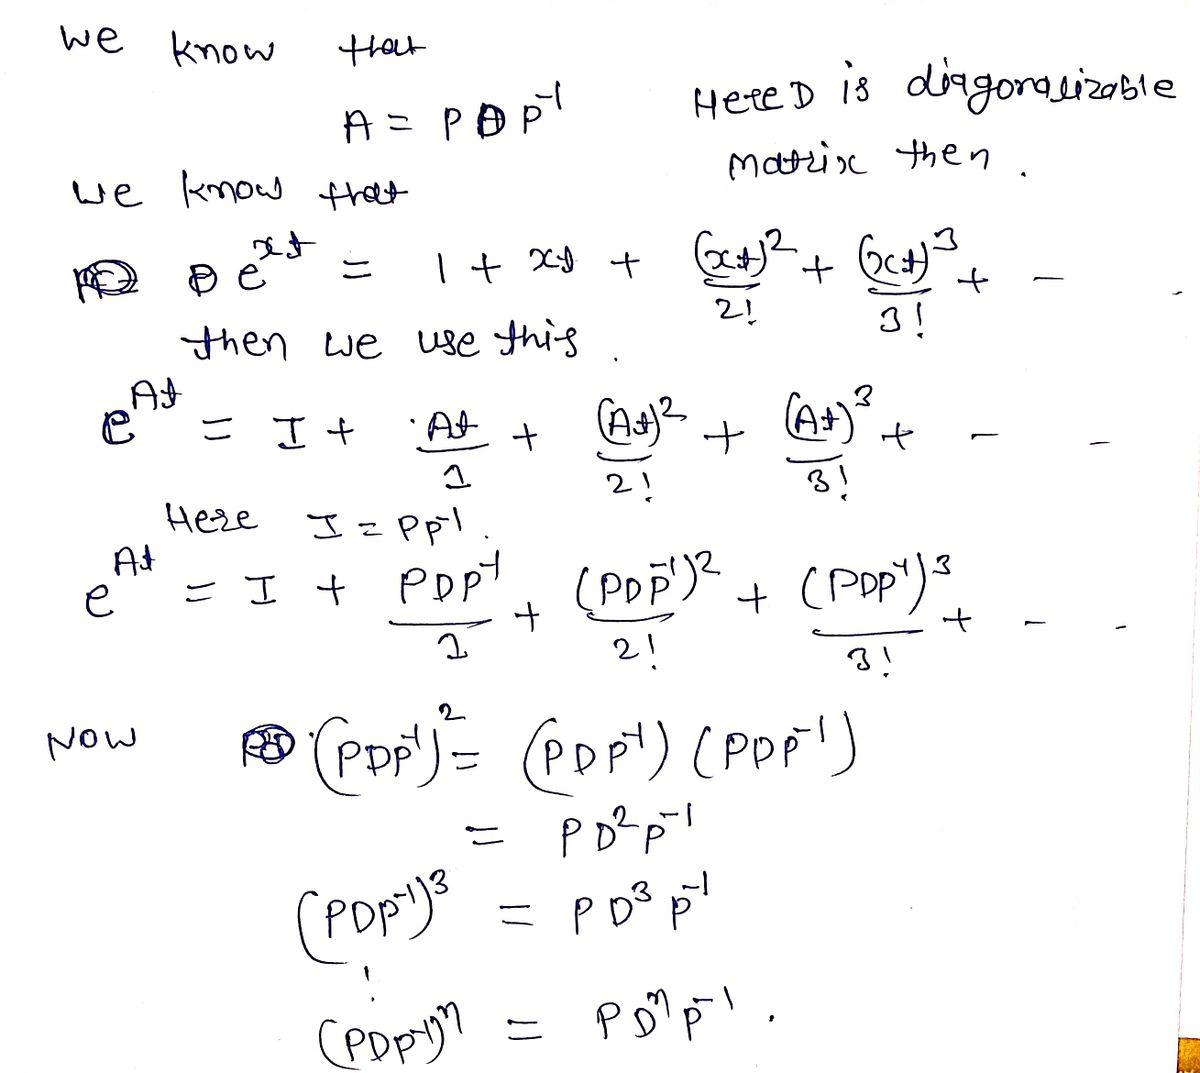 we know that
A = P D P⁻¹
Here D is diagonalizable
matrix then.
we know that
e^{xt} = 1 + xt + (xt)²/2! + (xt)³/3! + - -
then we use this.
e^{At} = I + At/1 + (At)²/2! + (At)³/3! + - -
Here I = PP⁻¹.
e^{At} = I + PDP⁻¹/1 + (PDP⁻¹)²/2! + (PDP⁻¹)³/3! + - -
NOW (PDP⁻¹)² = (PDP⁻¹) (PDP⁻¹)
= PD²P⁻¹
(PDP⁻¹)³ = PD³P⁻¹
(PDP⁻¹)ⁿ = PDⁿP⁻¹.